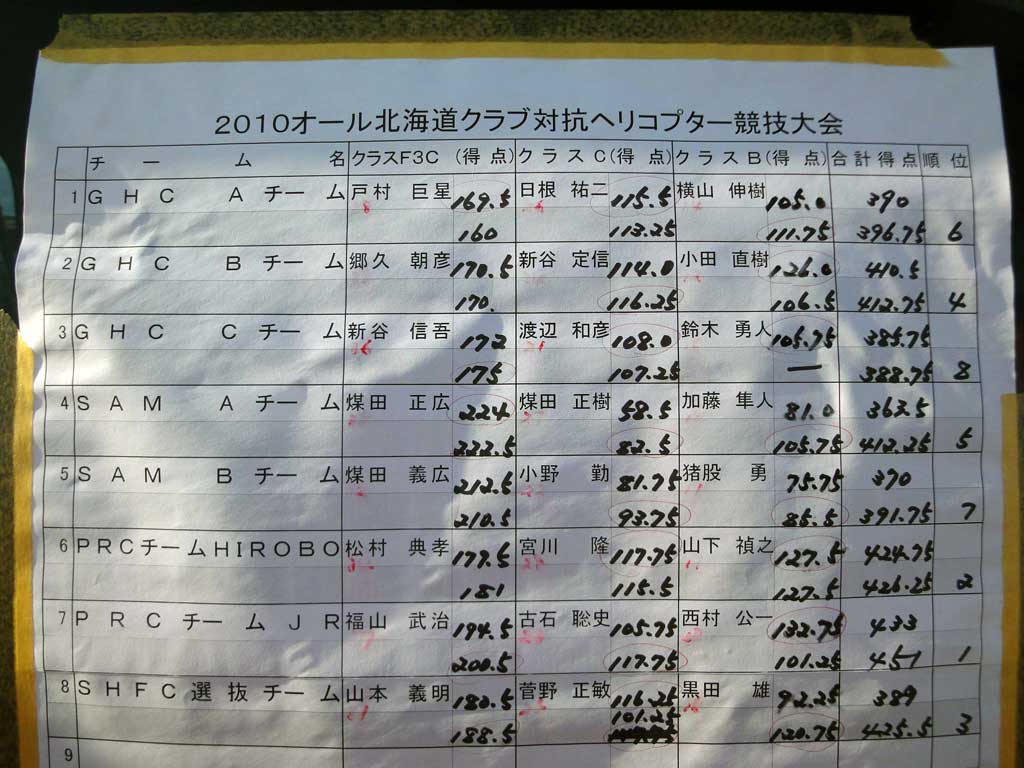 2010オール北海道クラブ対抗ヘリコプター競技大会
チーム名 クラスF3C (得点) クラスC (得点) クラスB (得点) 合計得点 順位
1 GHC Aチーム 戸村 巨星 169.5 日根 祐二 115.5 横山 伸樹 105.0 390
160 113.25 111.75 396.75 6
2 GHC Bチーム 郷久 朝彦 170.5 新谷 定信 114.0 小田 直樹 126.0 410.5
170. 116.25 106.5 412.75 4
3 GHC Cチーム 新谷 信吾 172 渡辺 和彦 108.0 鈴木 勇人 105.75 385.75
175 107.25 — 388.75 8
4 SAM Aチーム 煤田 正広 224 煤田 正樹 58.5 加藤 隼人 81.0 363.5
222.5 82.5 105.75 412.25 5
5 SAM Bチーム 煤田 義広 212.5 小野 勤 81.75 猪股 勇 75.75 370
210.5 93.75 85.5 391.75 7
6 PRCチームHIROBO 松村 典孝 177.5 宮川 隆 117.75 山下 禎之 127.5 424.75
181 115.5 127.5 426.25 2
7 PRCチームJR 福山 武治 194.5 古石 聡史 105.75 西村 公一 132.75 433
200.5 117.75 101.25 451 1
8 SHFC選抜チーム 山本 義明 180.5 菅野 正敏 116.25 黒田 雄 92.25 389
101.25
188.5 120.75 425.5 3
9